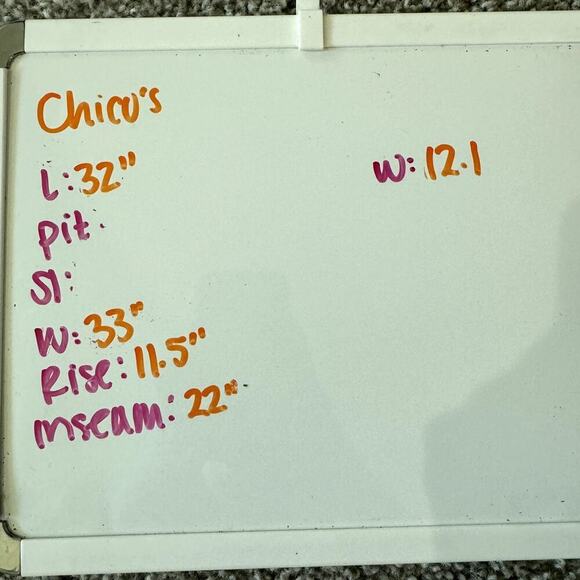 Chico's
L: 32"
W: 12.1
pit:
Sl:
W: 33"
Rise: 11.5"
inseam: 22"